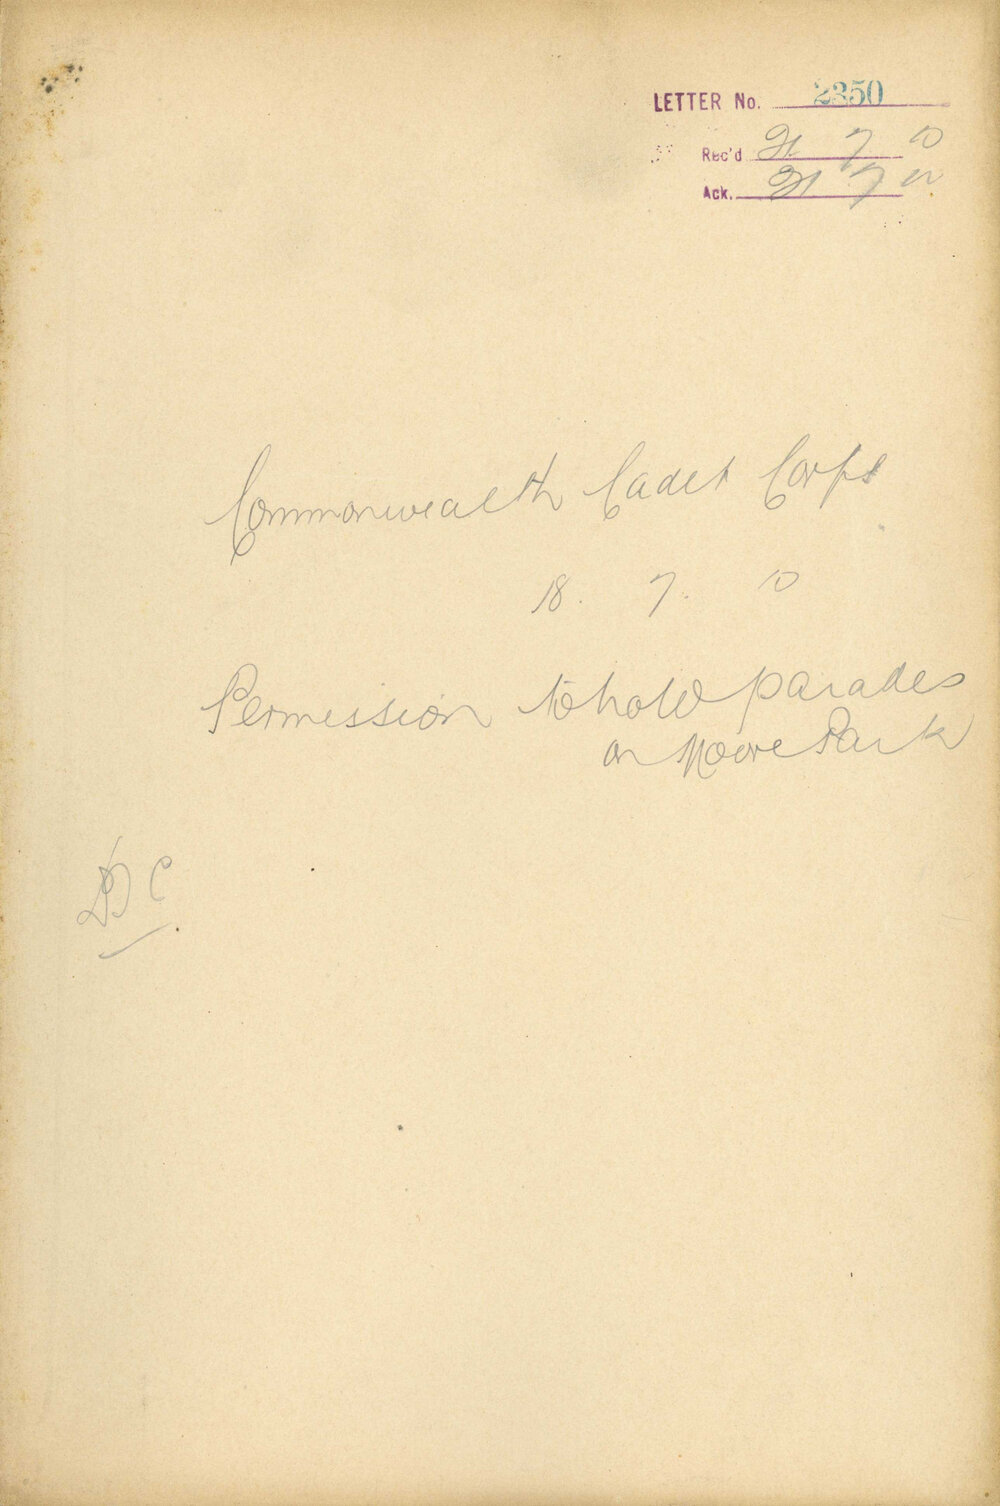 LETTER No. 2350
Rec'd 21 7 10
Ack. 21 7 10
Commonwealth Cadet Corps
18. 7. 10
Permission to hold parades
on Moore Park
DC